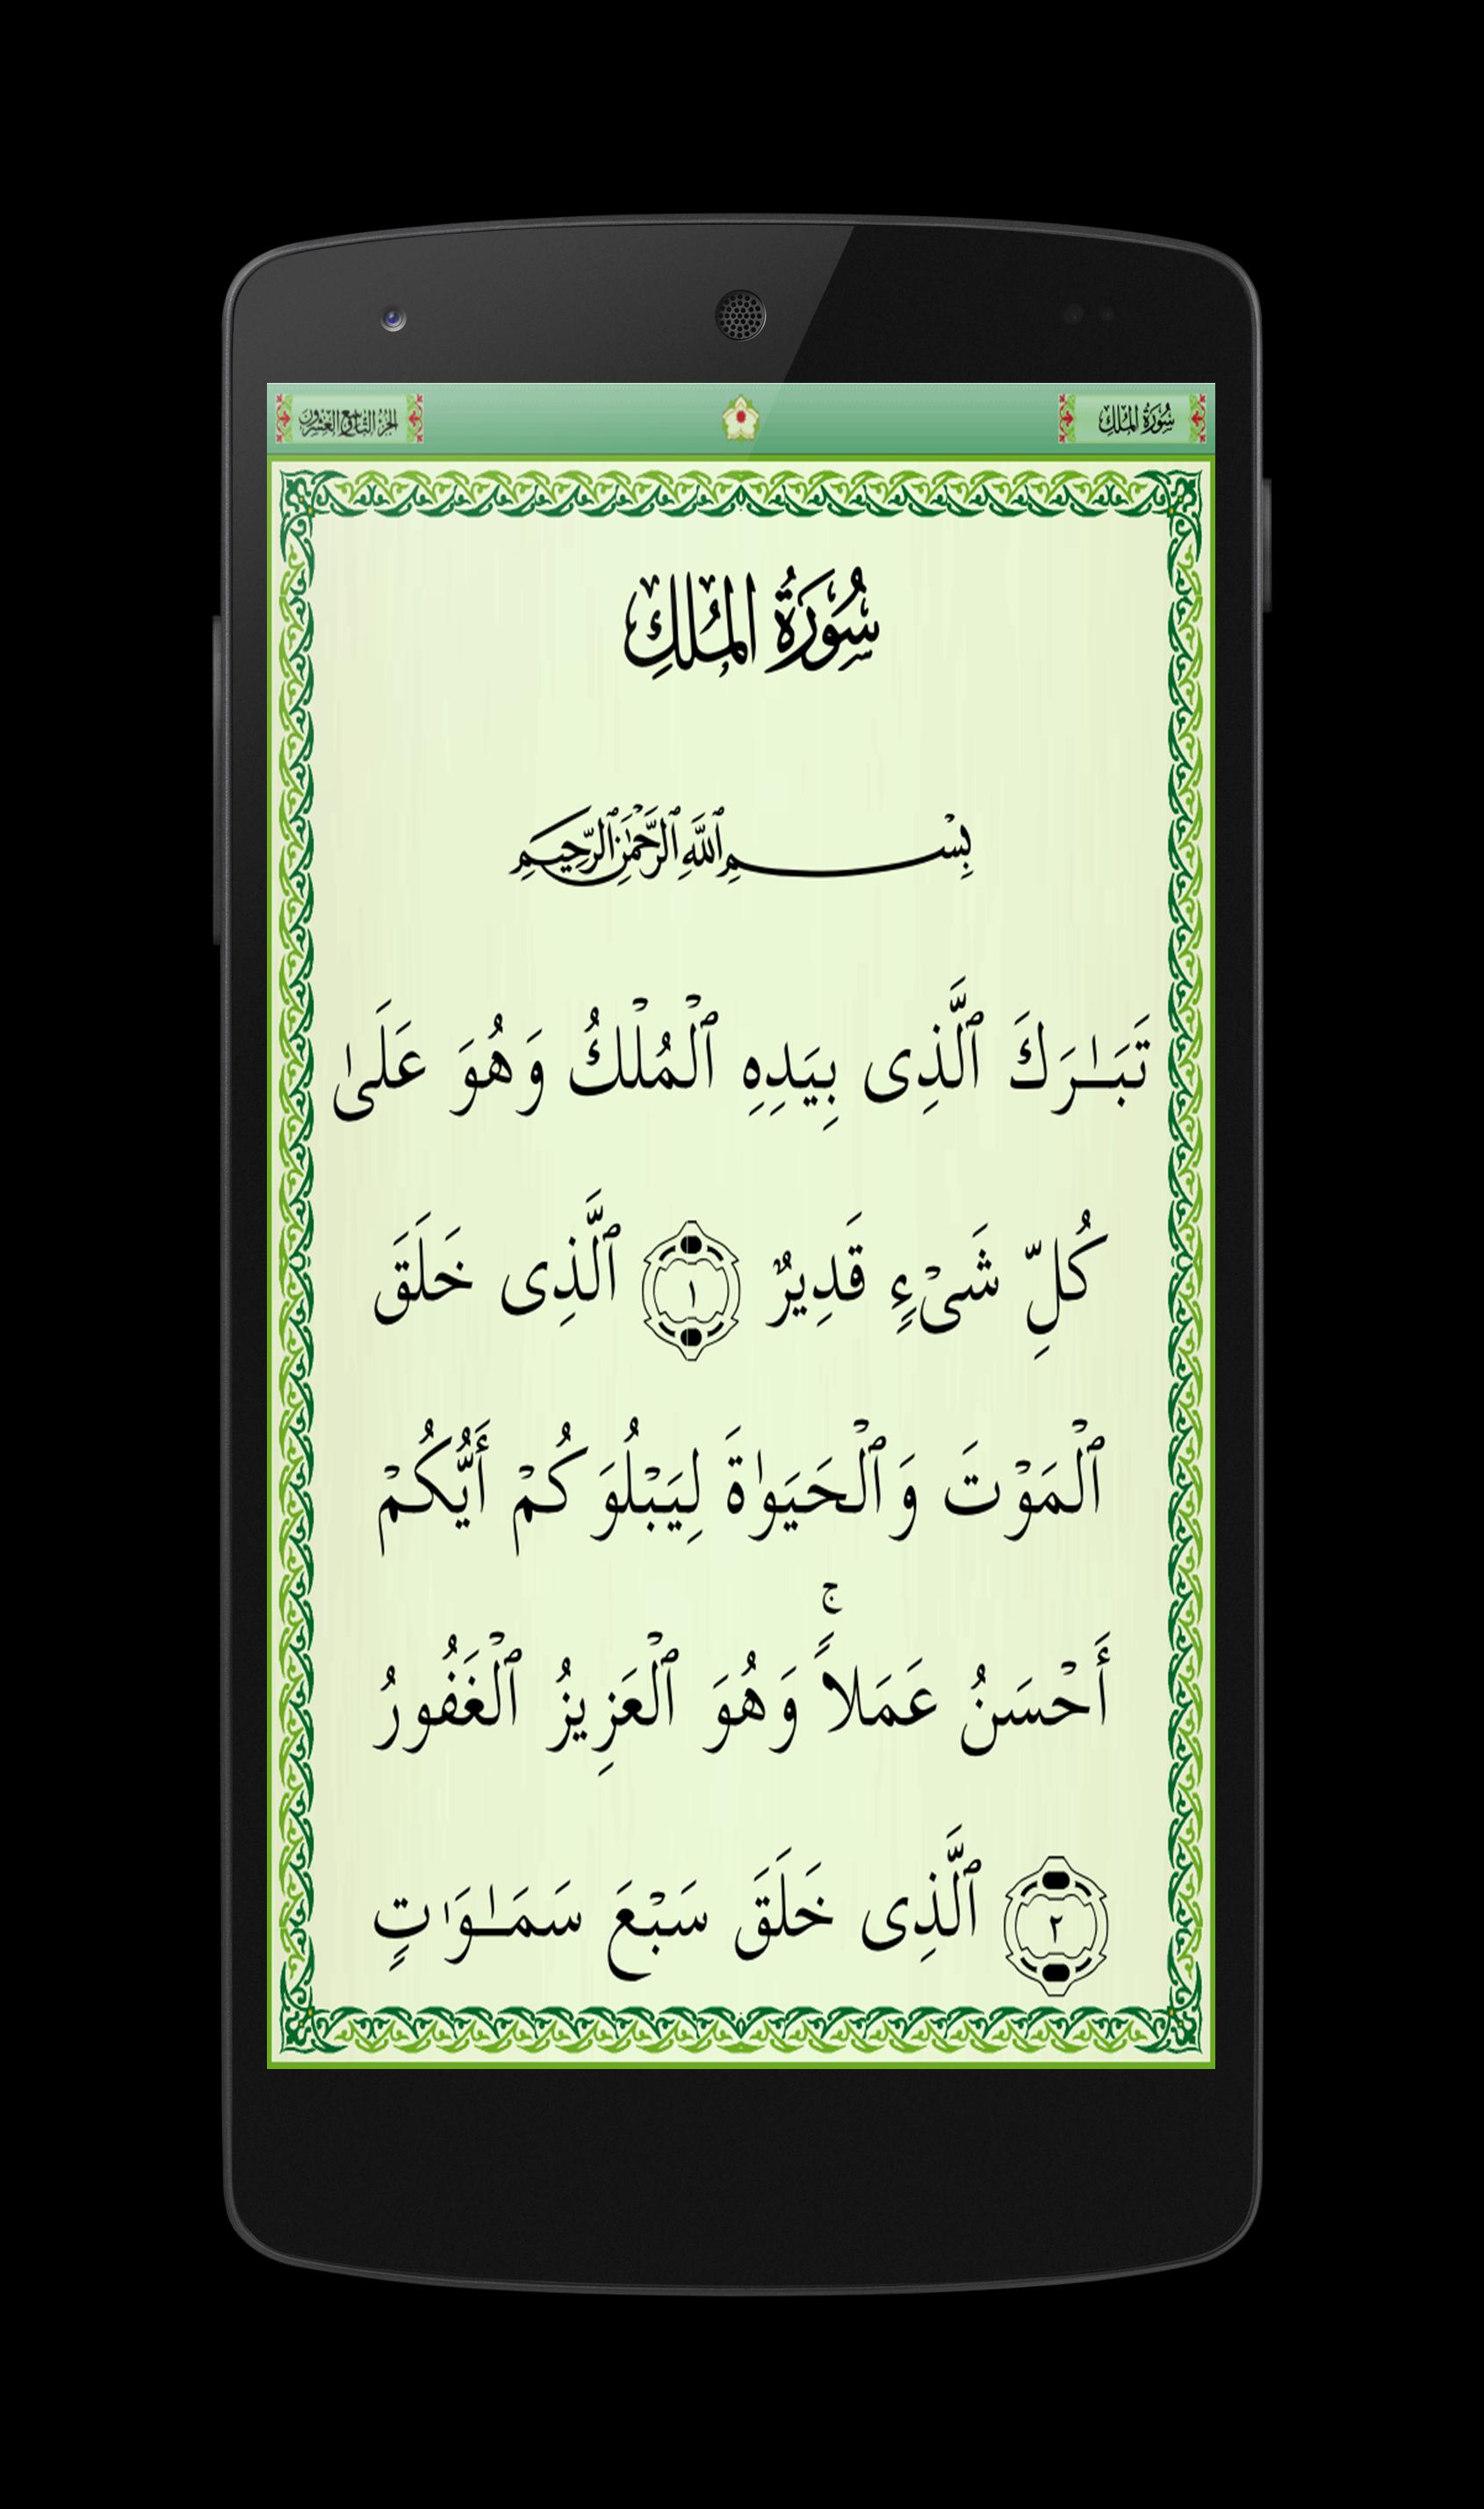 سُورَةُ المُلكِ
الجزء التاسع والعشرون
سُورَةُ المُلكِ
بِسْمِ ٱللَّهِ ٱلرَّحْمَٰنِ ٱلرَّحِيمِ
تَبَـٰرَكَ ٱلَّذِى بِيَدِهِ ٱلْمُلْكُ وَهُوَ عَلَىٰ
كُلِّ شَىْءٍ قَدِيرٌ ١ ٱلَّذِى خَلَقَ
ٱلْمَوْتَ وَٱلْحَيَوٰةَ لِيَبْلُوَكُمْ أَيُّكُمْ
أَحْسَنُ عَمَلاًۚ وَهُوَ ٱلْعَزِيزُ ٱلْغَفُورُ
٢ ٱلَّذِى خَلَقَ سَبْعَ سَمَـٰوَٰتٍ